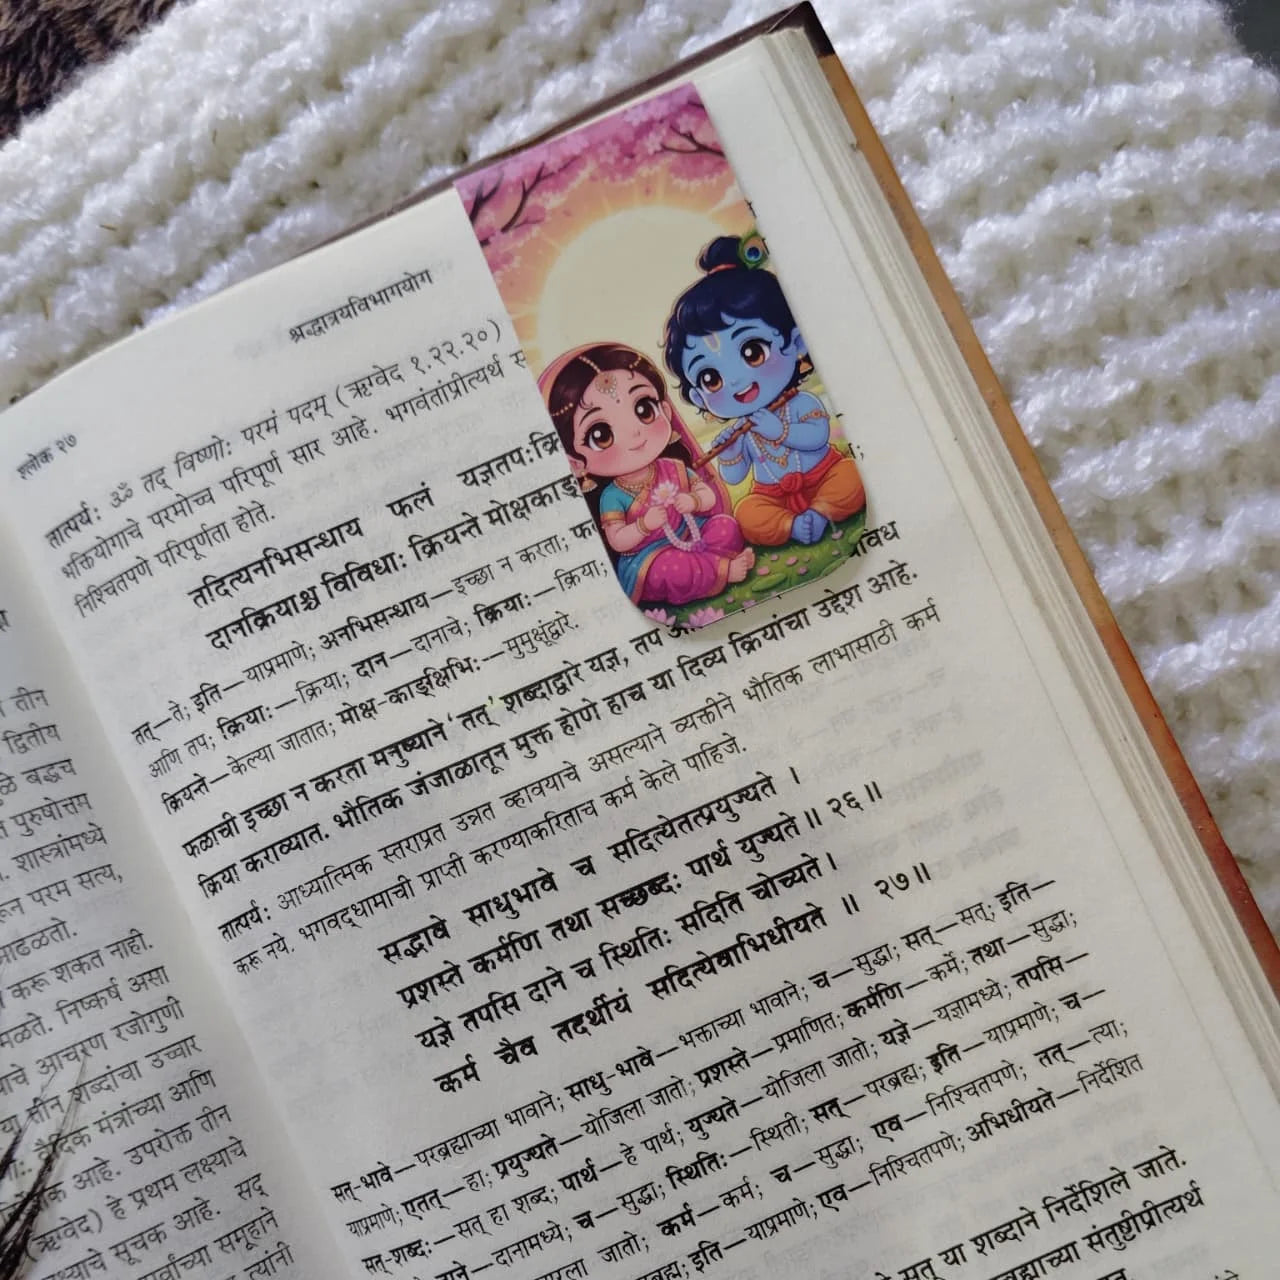 तीन
द्वितीय
बद्धच
पुरुषोत्तम
शास्त्रांमध्ये
परम सत्य,
आढळतो.
करू शकत नाही.
मळते. निष्कर्ष असा
आचरण रजोगुणी
या तीन शब्दांचा उच्चार
वैदिक मंत्रांच्या आणि
आहे. उपरोक्त तीन
(ऋग्वेद) हे प्रथम लक्ष्याचे
सूचक आहे. सद्
समूहाने
त्यांनी
श्लोक २७
श्रद्धात्रयविभागयोग
तात्पर्य: ॐ तद् विष्णो: परमं पदम् (ऋग्वेद १.२२.२०)
भक्तियोगाचे परमोच्च परिपूर्ण सार आहे. भगवंतांप्रीत्यर्थ
निश्चितपणे परिपूर्णता होते.
तदित्यनभिसन्धाय फलं यज्ञतप:क्रि
दानक्रियाश्च विविधा: क्रियन्ते मोक्षकाङ्
तत्—ते; इति—याप्रमाणे; अनभिसन्धाय—इच्छा न करता; फ
आणि तप; क्रिया:—क्रिया; दान—दानाचे; क्रिया:—क्रिया;
क्रियन्ते—केल्या जातात; मोक्ष-काङ्क्षिभि:—मुमुक्षूंद्वारे.
फळाची इच्छा न करता मनुष्याने ‘तत्’ शब्दाद्वारे यज्ञ, तप
क्रिया कराव्यात. भौतिक जंजाळातून मुक्त होणे हाच या दिव्य क्रियांचा उद्देश आहे.
तात्पर्य: आध्यात्मिक स्तराप्रत उन्नत व्हावयाचे असल्याने व्यक्तीने भौतिक लाभासाठी कर्म
करू नये. भगवद्धामाची प्राप्ती करण्याकरिताच कर्म केले पाहिजे.
सद्भावे साधुभावे च सदित्येतत्प्रयुज्यते ।
प्रशस्ते कर्मणि तथा सच्छब्द: पार्थ युज्यते ॥ २६ ॥
यज्ञे तपसि दाने च स्थिति: सदिति चोच्यते ।
कर्म चैव तदर्थीयं सदित्येवाभिधीयते ॥ २७ ॥
सत्-भावे—परब्रह्माच्या भावाने; साधु-भावे—भक्ताच्या भावाने; च—सुद्धा; सत्—सत्; इति—
याप्रमाणे; एतत्—हा; प्रयुज्यते—योजिला जातो; प्रशस्ते—प्रमाणित; कर्मणि—कर्मे; तथा—सुद्धा;
सत्-शब्द:—सत् हा शब्द; पार्थ—हे पार्थ; युज्यते—योजिला जातो; यज्ञे—यज्ञामध्ये; तपसि—
दाने—दानामध्ये; च—सुद्धा; स्थिति:—स्थिती; सत्—परब्रह्म; इति—याप्रमाणे; च—
जातो; कर्म—कर्म; च—सुद्धा; एव—निश्चितपणे; तत्—त्या;
इति—याप्रमाणे; एव—निश्चितपणे; अभिधीयते—निर्देशित
सत् या शब्दाने निर्देशिले जाते.
संतुष्टीप्रीत्यर्थ